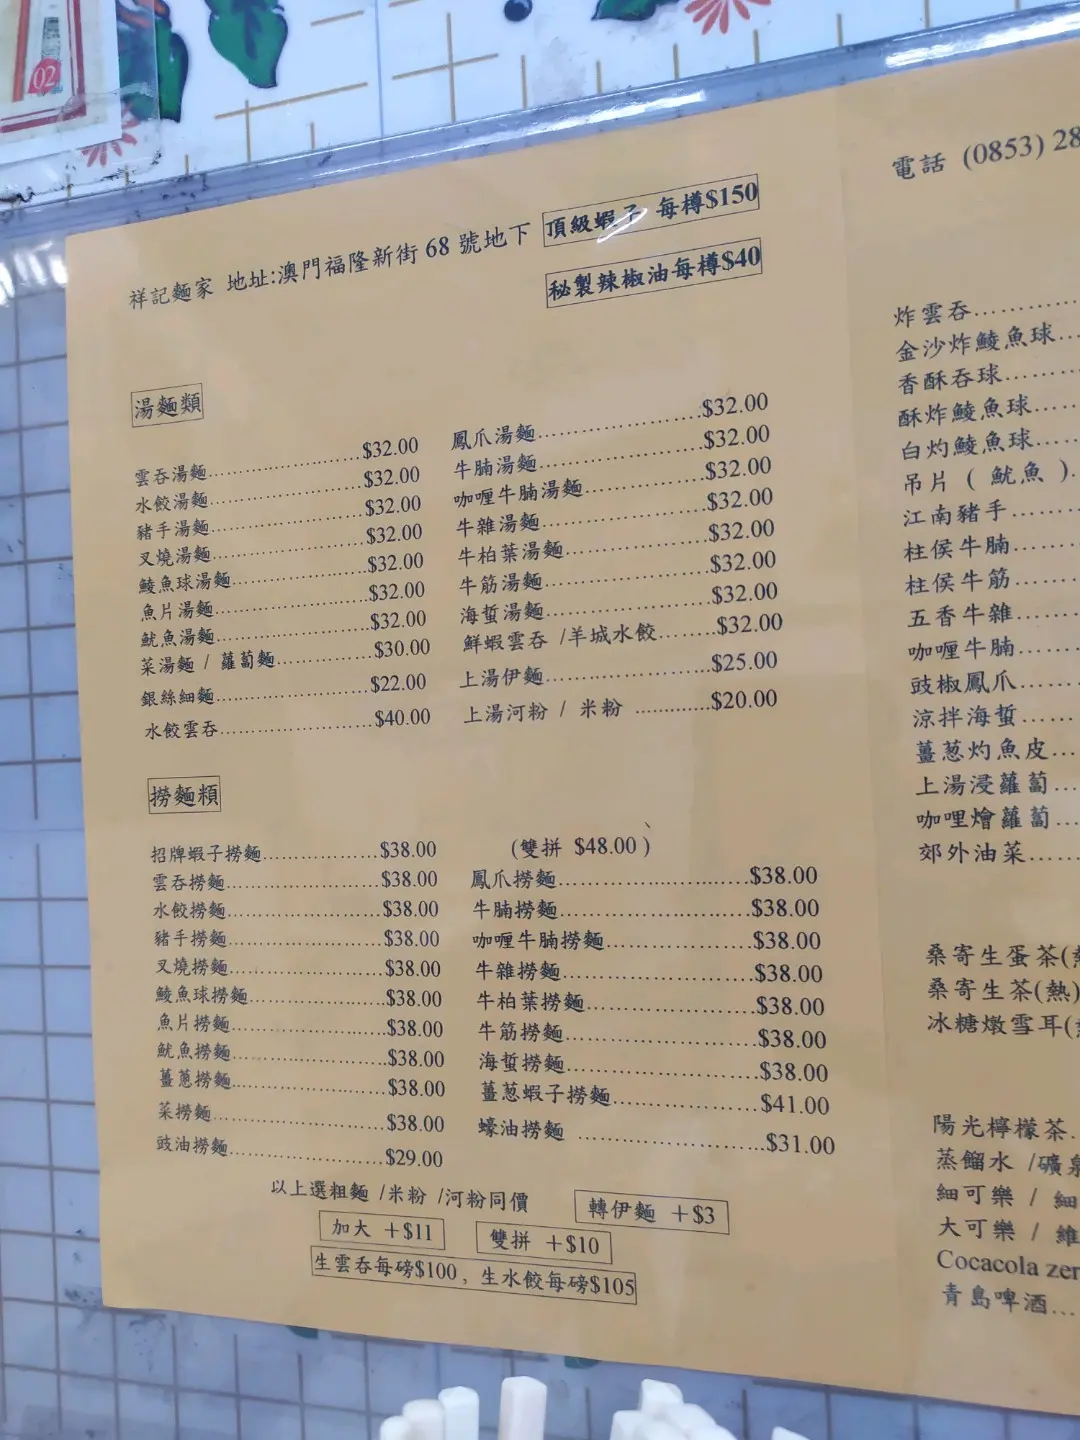 02
祥記麵家 地址:澳門福隆新街 68 號地下
頂級蝦子 每樽$150
秘製辣椒油每樽$40
湯麵類
雲吞湯麵 $32.00
水餃湯麵 $32.00
豬手湯麵 $32.00
叉燒湯麵 $32.00
鯪魚球湯麵 $32.00
魚片湯麵 $32.00
魷魚湯麵 $32.00
菜湯麵 / 蘿蔔麵 $30.00
銀絲細麵 $22.00
水餃雲吞 $40.00
鳳爪湯麵 $32.00
牛腩湯麵 $32.00
咖喱牛腩湯麵 $32.00
牛雜湯麵 $32.00
牛柏葉湯麵 $32.00
牛筋湯麵 $32.00
海蜇湯麵 $32.00
鮮蝦雲吞 /羊城水餃 $32.00
上湯伊麵 $25.00
上湯河粉 / 米粉 $20.00
撈麵類
招牌蝦子撈麵 $38.00
雲吞撈麵 $38.00
水餃撈麵 $38.00
豬手撈麵 $38.00
叉燒撈麵 $38.00
鯪魚球撈麵 $38.00
魚片撈麵 $38.00
魷魚撈麵 $38.00
薑蔥撈麵 $38.00
菜撈麵 $38.00
豉油撈麵 $29.00
(雙拼 $48.00)
鳳爪撈麵 $38.00
牛腩撈麵 $38.00
咖喱牛腩撈麵 $38.00
牛雜撈麵 $38.00
牛柏葉撈麵 $38.00
牛筋撈麵 $38.00
海蜇撈麵 $38.00
薑葱蝦子撈麵 $41.00
蠔油撈麵 $31.00
以上選粗麵 /米粉 /河粉同價
轉伊麵 +$3
加大 +$11
雙拼 +$10
生雲吞每磅$100, 生水餃每磅$105
電話 (0853) 28
炸雲吞
金沙炸鯪魚球
香酥吞球
酥炸鯪魚球
白灼鯪魚球
吊片 ( 魷魚 )
江南豬手
柱侯牛腩
柱侯牛筋
五香牛雜
咖喱牛腩
豉椒鳳爪
涼拌海蜇
薑葱灼魚皮
上湯浸蘿蔔
咖哩燴蘿蔔
郊外油菜
桑寄生蛋茶(熱
桑寄生茶(熱)
冰糖燉雪耳(
陽光檸檬茶
蒸餾水 /礦泉
細可樂 / 細
大可樂 / 維
Cocacola zer
青島啤酒